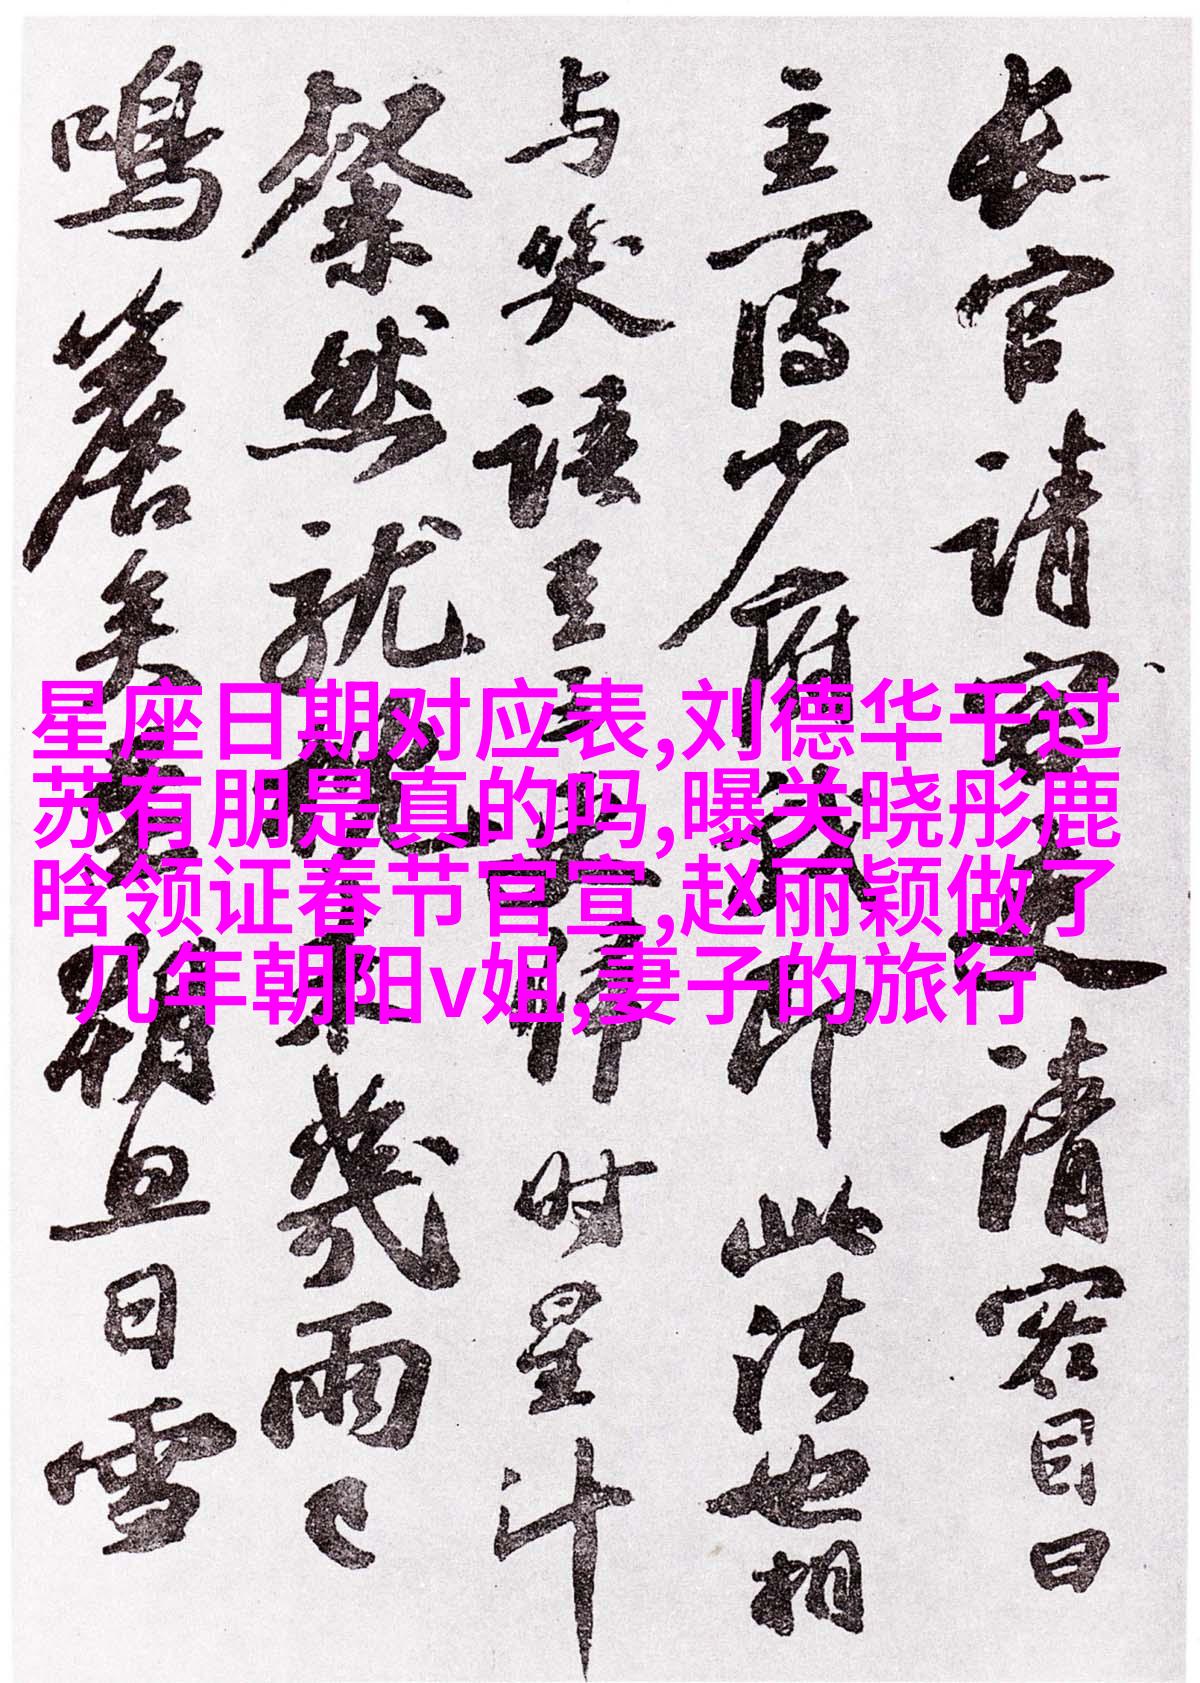 长官请客吏请客目曰
主簿少府我即此法也相
与笑语至
归时星斗
粲然就
不几雨〻
鸣詹矣
朔旦日雪
星座日期对应表,刘德华干过
苏有朋是真的吗,曝关晓彤鹿
晗领证春节官宣,赵丽颖做了
几年朝阳v姐,妻子的旅行